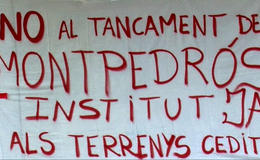 NO AL TANCAMENT DE
MONTPEDRÓS
INSTITUT JA
ALS TERRENYS CEDIT